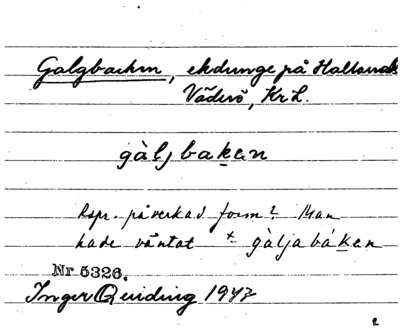 Galgbacken, ekdunge på Hallands
Väderö, Kr.L.
gàlj bakęn
Rspr. påverkad form? Man
hade väntat + gàlja bákęn
Nr 5326.
Inger Quiding 1943